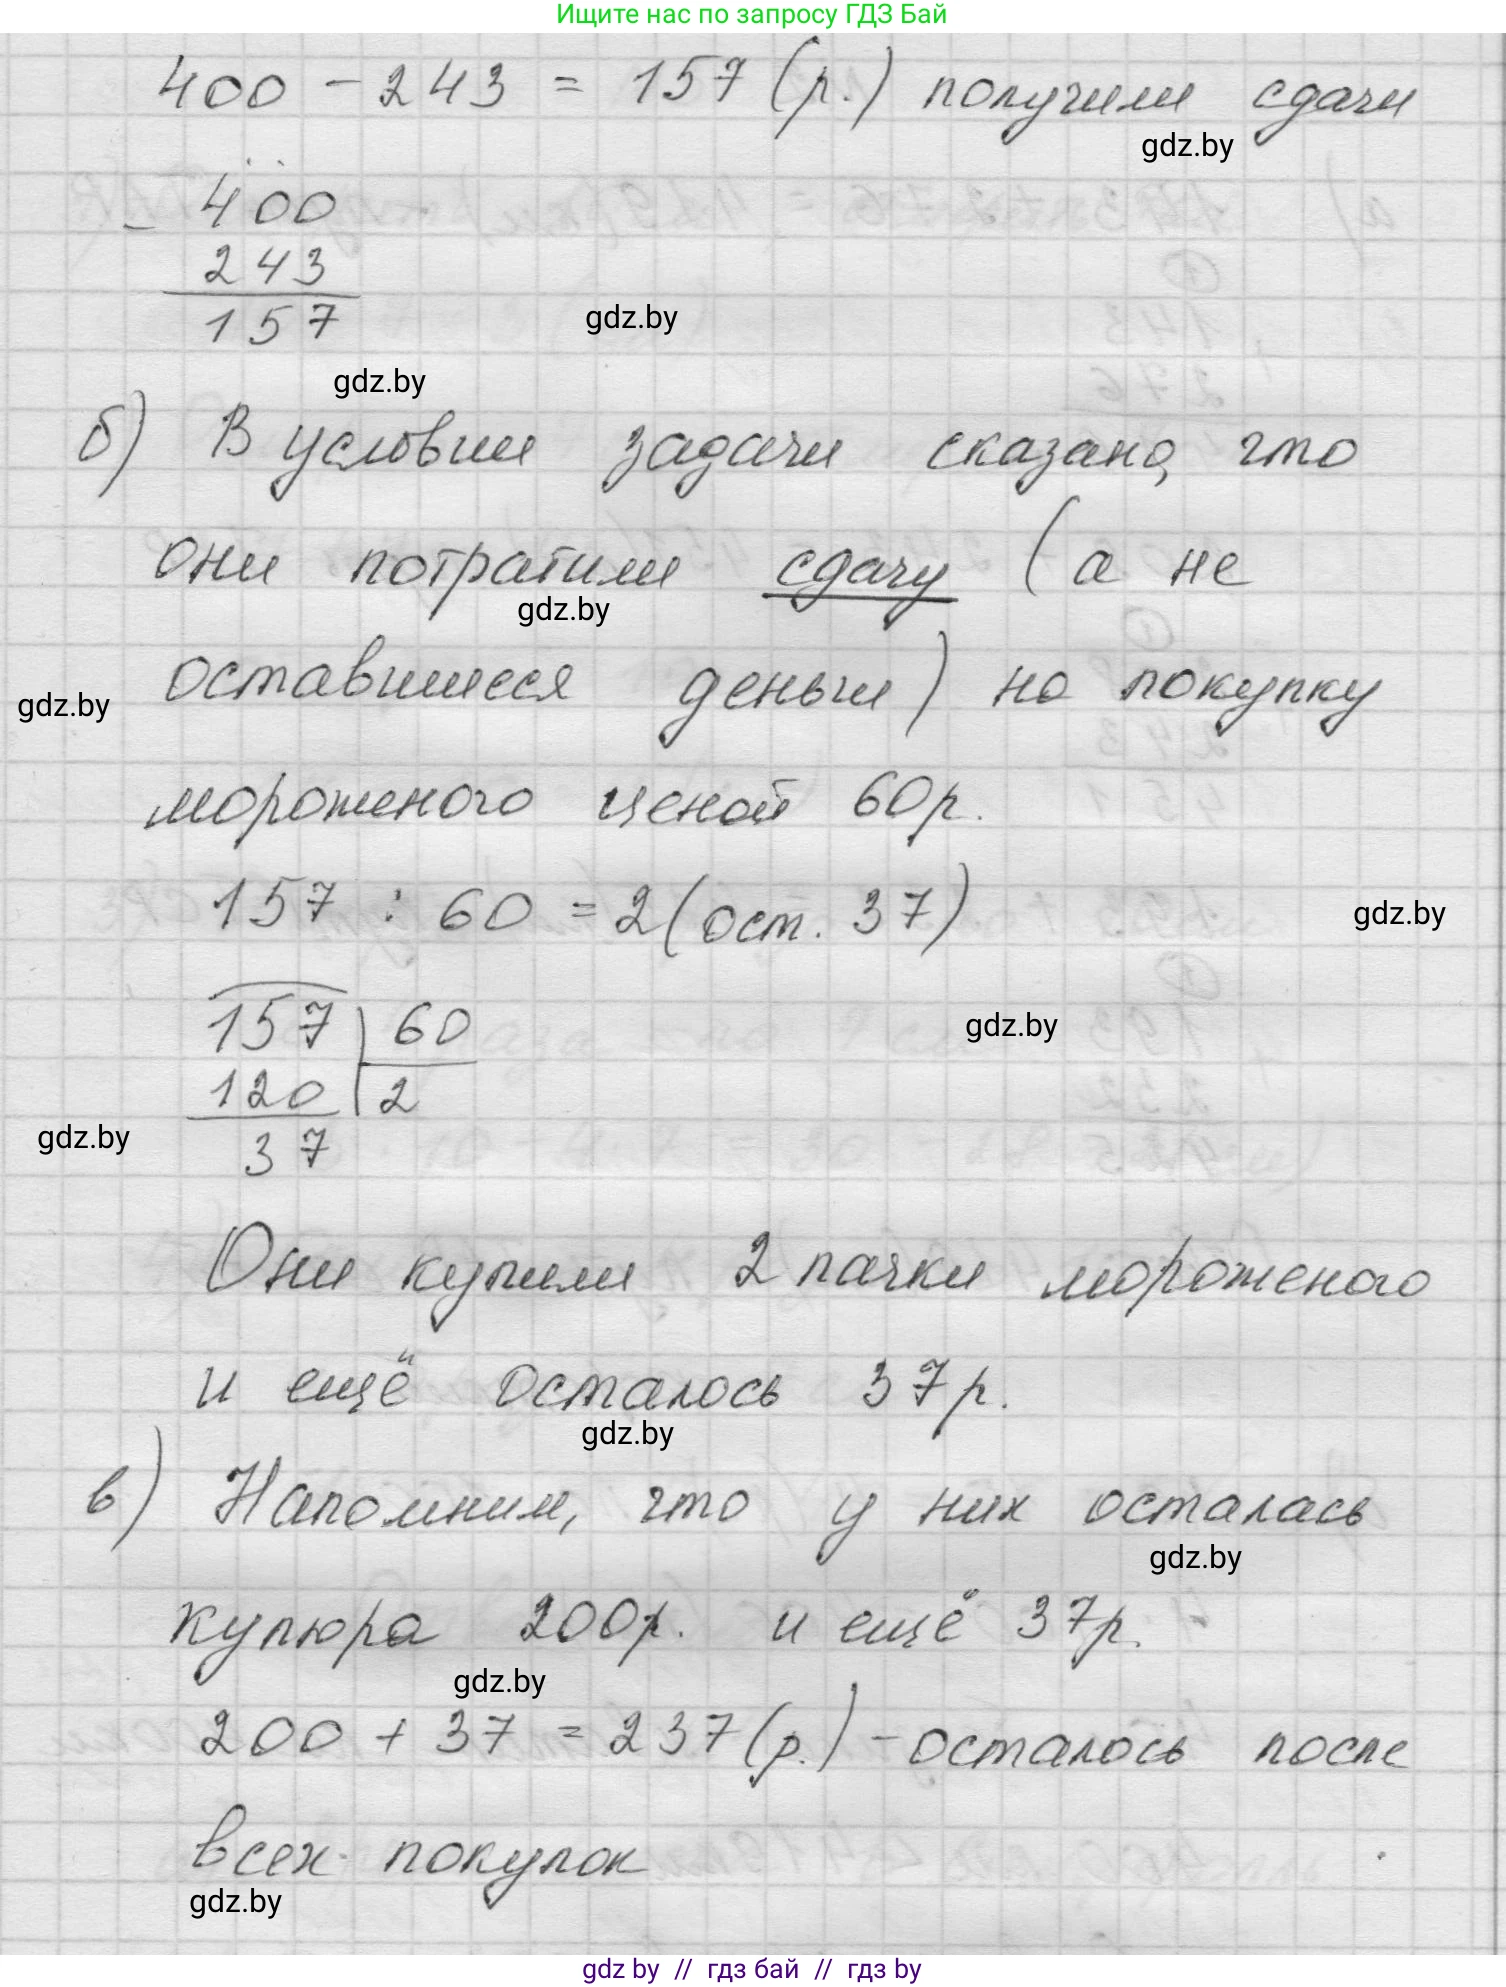 Ищите нас по запросу ГДЗ Бай
400 - 243 = 157 (р.) получили сдачи
gdz.by
- 400
243
157
gdz.by
gdz.by
б) В условии задачи сказано, что
они потратили сдачу (а не
gdz.by
оставшиеся деньги) на покупку
gdz.by
мороженого ценой 60р.
157 : 60 = 2 (ост. 37)
gdz.by
157 60
gdz.by
120 2
37
gdz.by
Они купили 2 пачки мороженого
и ещё осталось 37р.
gdz.by
в) Напомним, что у них осталась
gdz.by
купюра 200р. и ещё 37р.
gdz.by
200 + 37 = 237 (р.) - осталось после
всех покупок
gdz.by
gdz.by // гдз бай // гдз by